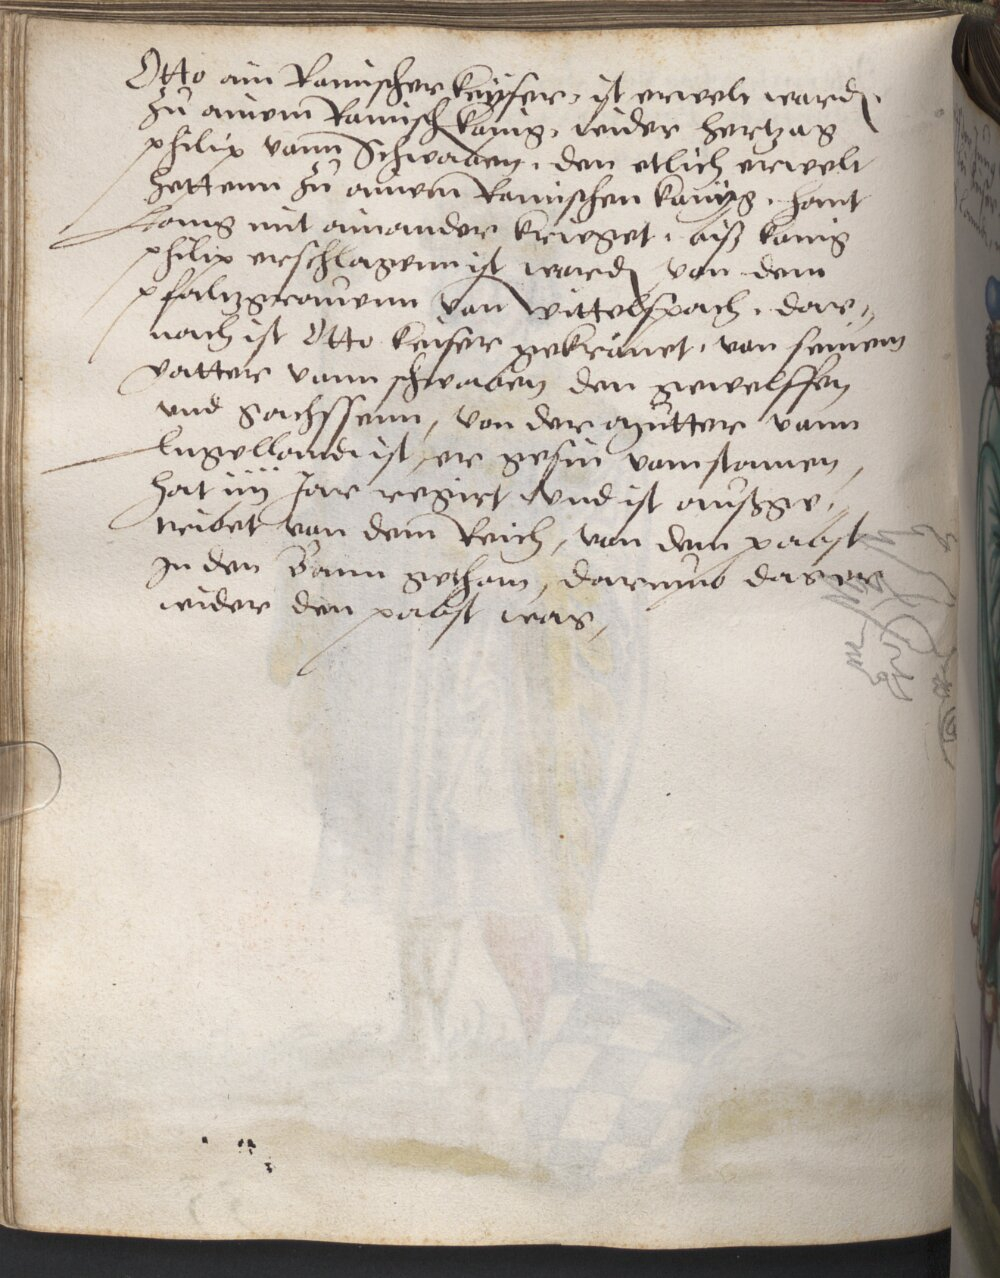 Otto ain Romischer keyser, ist erwelt word
zu ainem Romisch konig, wider hertzog
philip vonn Schwaben, den etlich erwelt
hettenn zu ainem Romischen konig, hant
long mit ainander krieget, biß konig
philip erschlagenn ist word von dem
pfaltzgrauenn von wittelspach, dar
nach ist Otto keiser gekrönet, von seinem
vatter vonn schwaben den gewelffen
vnd Sachssenn, von der mutter vonn
Engellandt ist er gesin vom stamen,
hat iiij Jar regirt vnd ist außge
tribet von dem Reich, von dem pabst
In den Bann gethan, darumb das er
wider den pabst was,